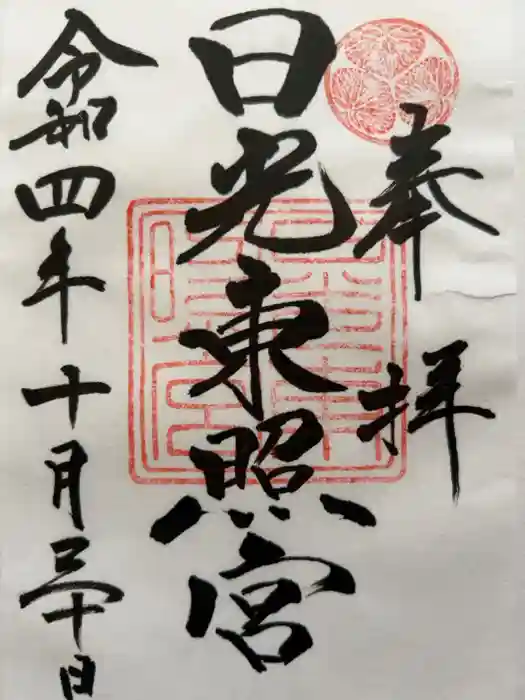 奉拝
日光東照宮
令和四年十月三十日